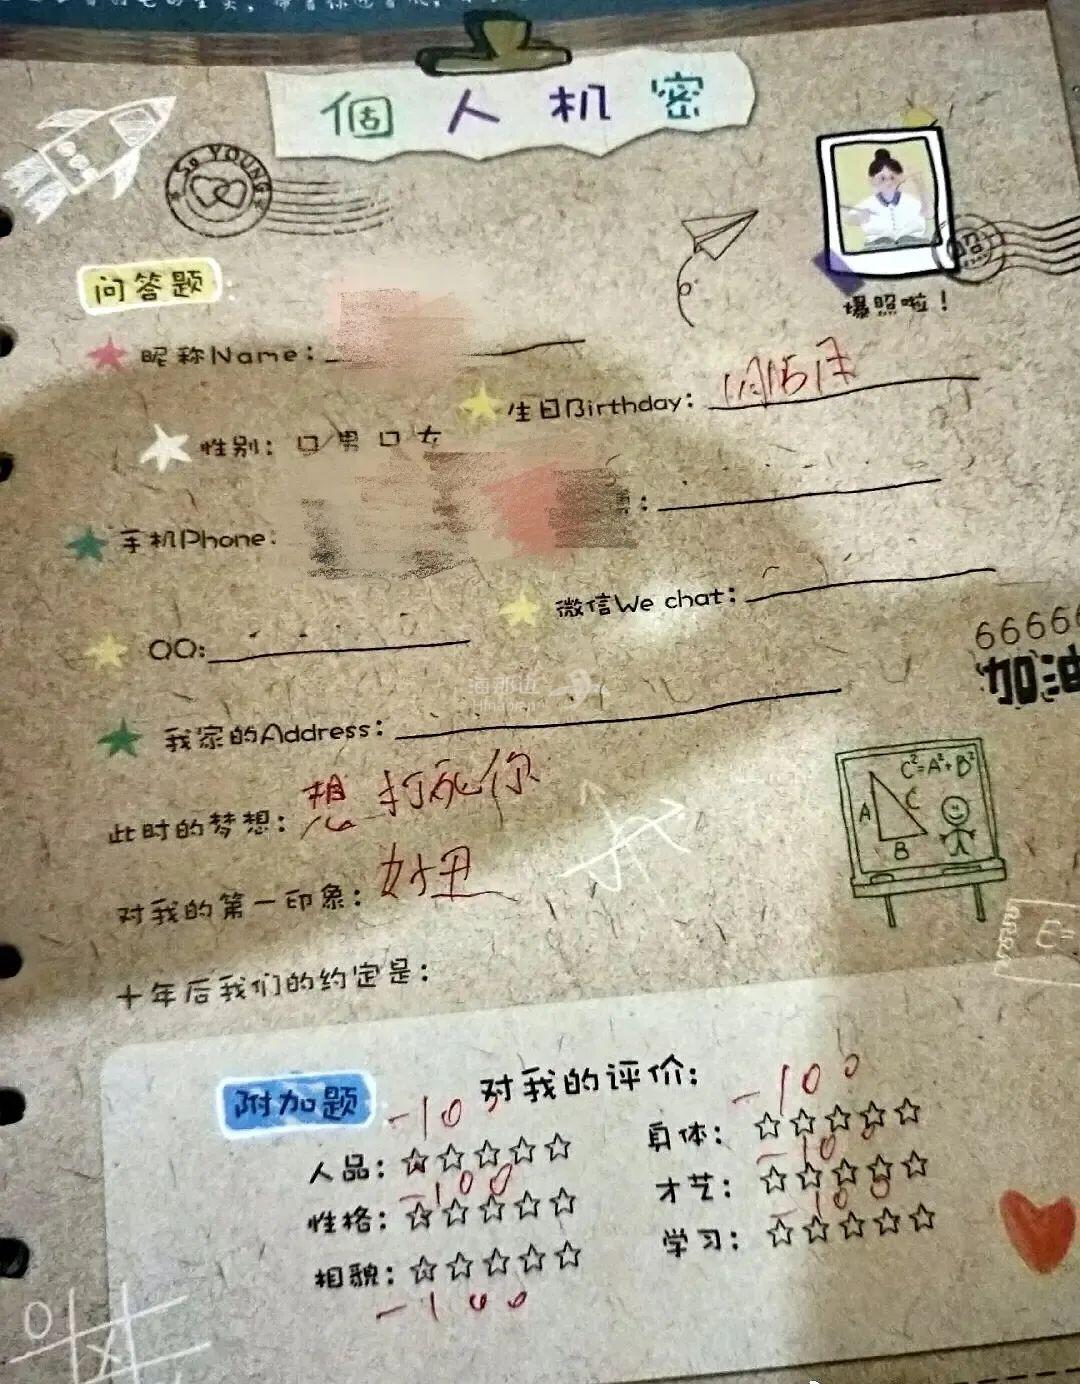 個人机密
So YOUNG
爆照啦！
问答题
昵称Name：
生日Birthday：1月15日
性别：□男 □女
手机Phone：
QQ：
微信We chat：
66666
加油
我家的Address：
C²=A²+B²
A
C
B
此时的梦想：想打死你
对我的第一印象：好丑
E=
十年后我们的约定是：
附加题
对我的评价：
-100
-100
人品：☆☆☆☆☆
身体：☆☆☆☆☆
-100
-100
性格：☆☆☆☆☆
才艺：☆☆☆☆☆
-100
相貌：☆☆☆☆☆
学习：☆☆☆☆☆
-100
海那边
Hinabian